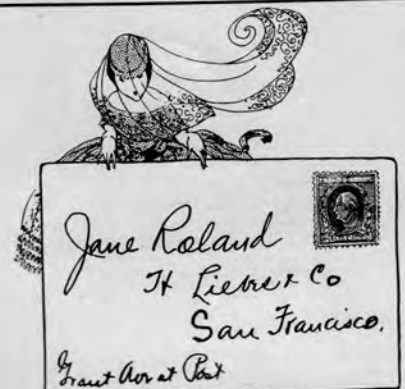 Jane Roland
H Liebes & Co
San Francisco.
Grant Ave at Post